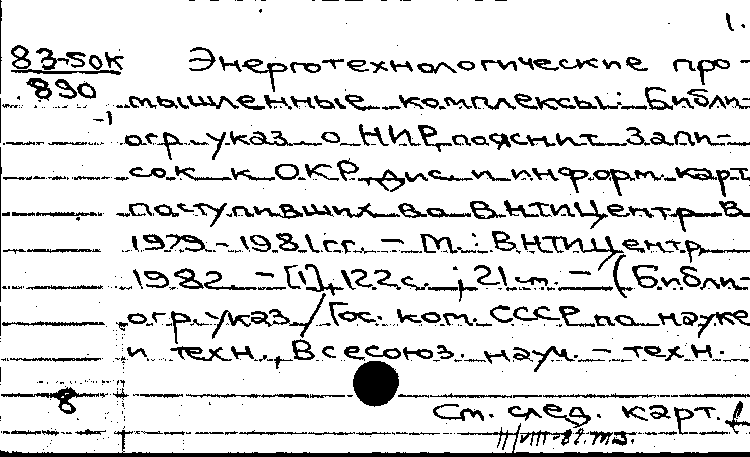 1.
83-50К Энерготехнологические про-
890 мышленные комплексы: Библи-
-1 огр. указ. о НИР, пояснит. запи-
сок к ОКР, дис. и информ. карт,
поступивших во ВНТИЦентр в
1979-1981 гг. - М.: ВНТИЦентр,
1982. - [1], 122 с. ; 21 см. - (Библи-
огр. указ. / Гос. ком. СССР по науке
и техн., Всесоюз. науч. - техн.
8 См. след. карт.